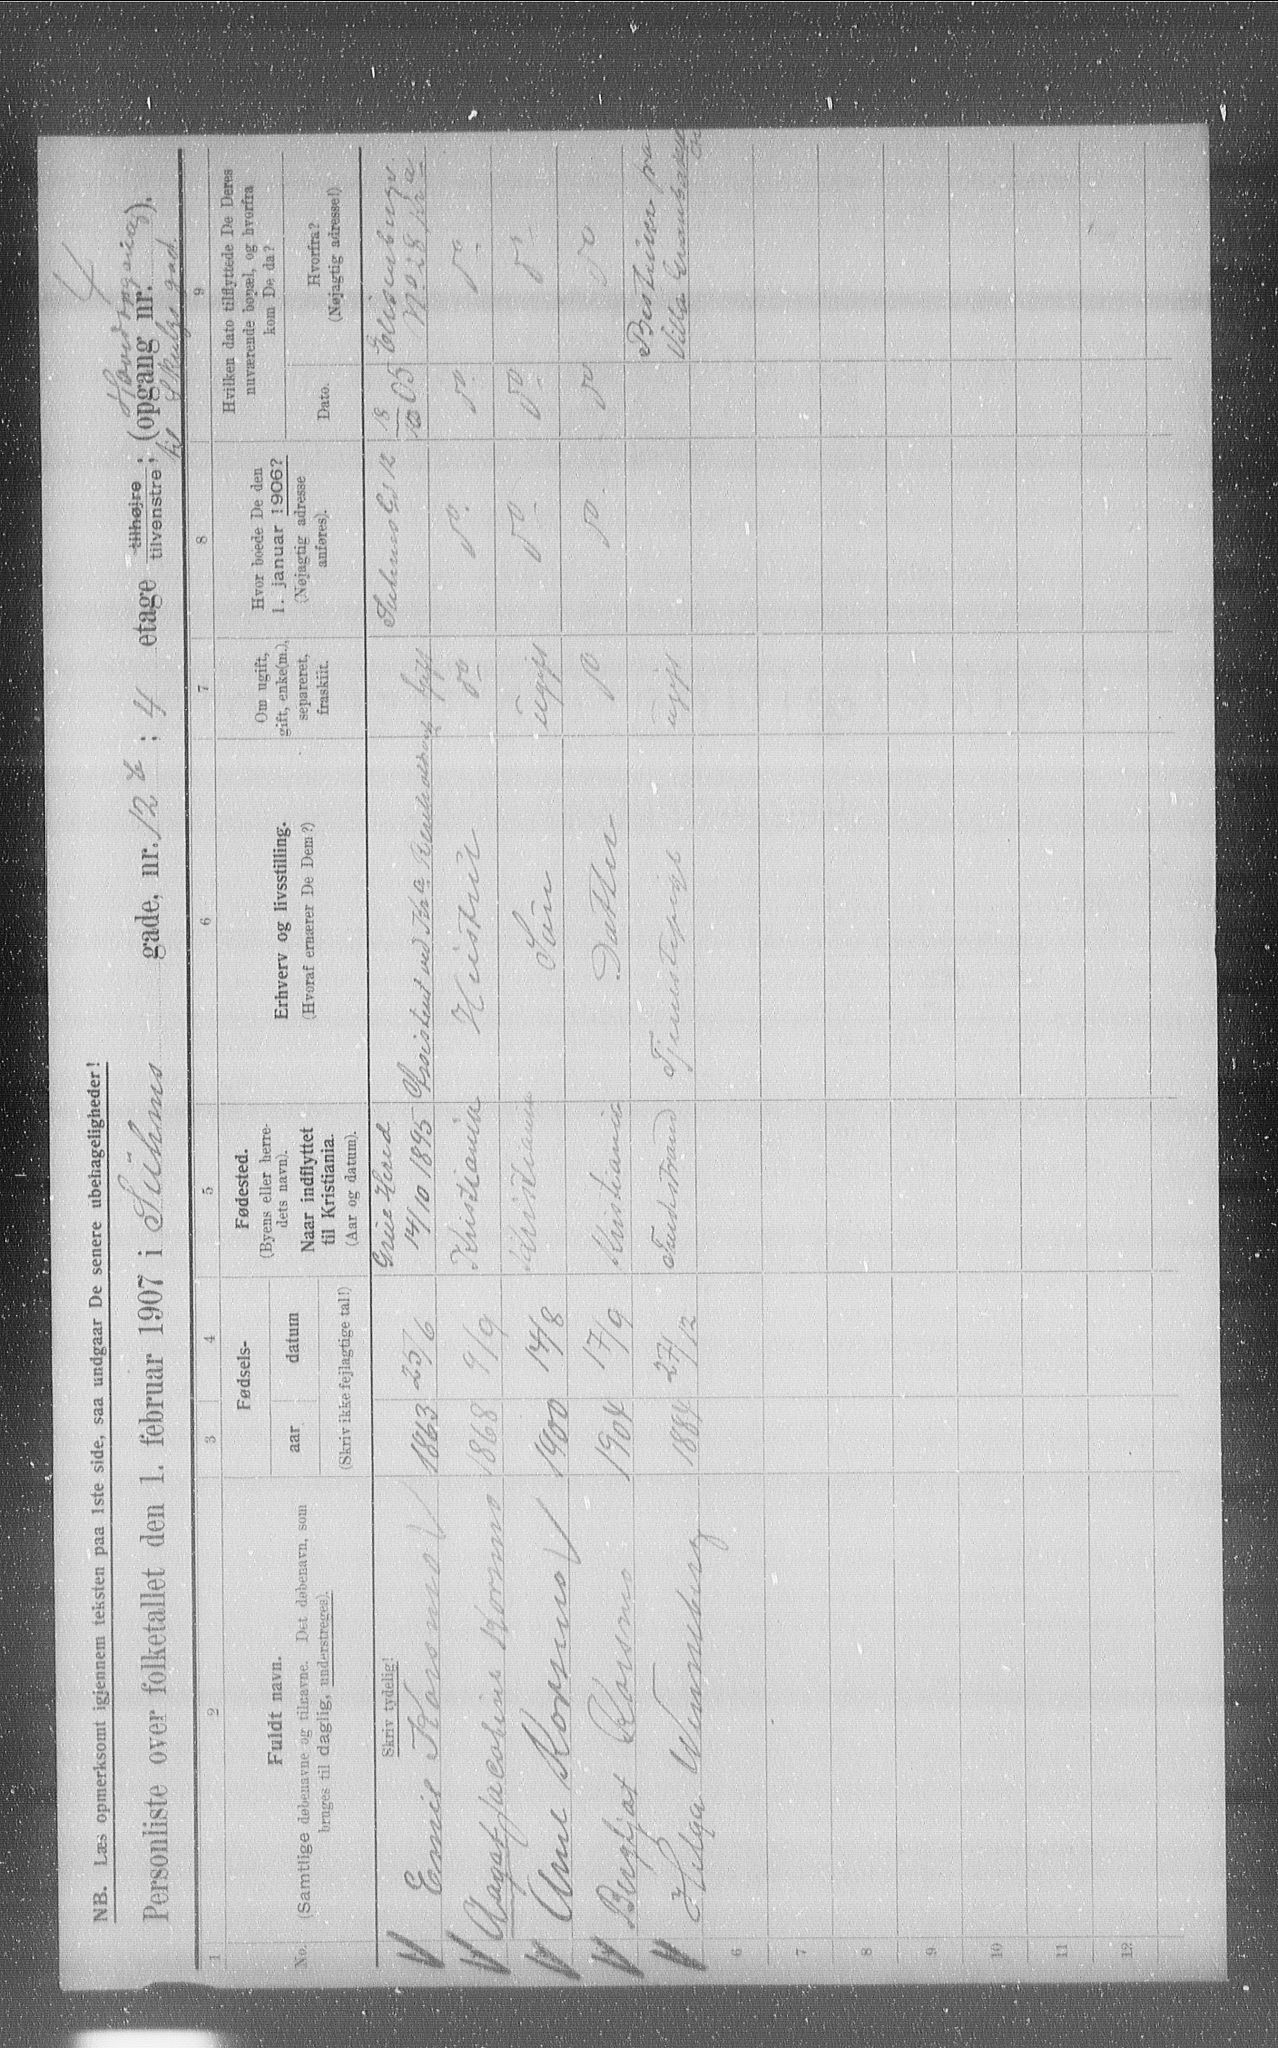 NB. Læs opmerksomt igjennem teksten paa 1ste side, saa undgaar De senere ubehageligheder!
4
Personliste over folketallet den 1. februar 1907 i Suhms gade, nr. 12 b ; 4 etage tilhøjre, tilvenstre, (opgang nr. ).
til gad.
1
2
3
4
5
6
7
8
9
No.
Fuldt navn.
(Samtlige døbenavne og tilnavne. Det døbenavn, som
bruges til daglig, understreges).
Fødsels-
aar
datum
(Skriv ikke fejlagtige tal!)
Fødested.
(Byens eller herre-
dets navn).
Naar indflyttet
til Kristiania.
(Aar og datum).
Erhverv og livsstilling.
(Hvoraf ernærer De Dem?)
Om ugift,
gift, enke(m.),
separeret,
fraskilt.
Hvor boede De den
1. januar 1906?
(Nøjagtig adresse
anføres).
Hvilken dato tilflyttede De Deres
nuværende bopæl, og hvorfra
kom De da?
Dato.
Hvorfra?
(Nøjagtig adresse!)
Skriv tydelig!
Emil Korsmo 1863 25/6 Grue Hered 14/10 1895 Assistent ved Kra Renholdsv. gift Suhms Gd 12 18/10 05 No 28 Kra
Aagot Jacobine Korsmo 1868 9/9 Kristiania Hustru do do do do
Arne Korsmo 1900 14/8 Kristiania Søn ugift do do do
Bergljot Korsmo 1904 17/9 Kristiania Datter do do do do
Helga Wennberg 1884 27/12 Tjenestepige ugift fra
Villa
6
7
8
9
10
11
12